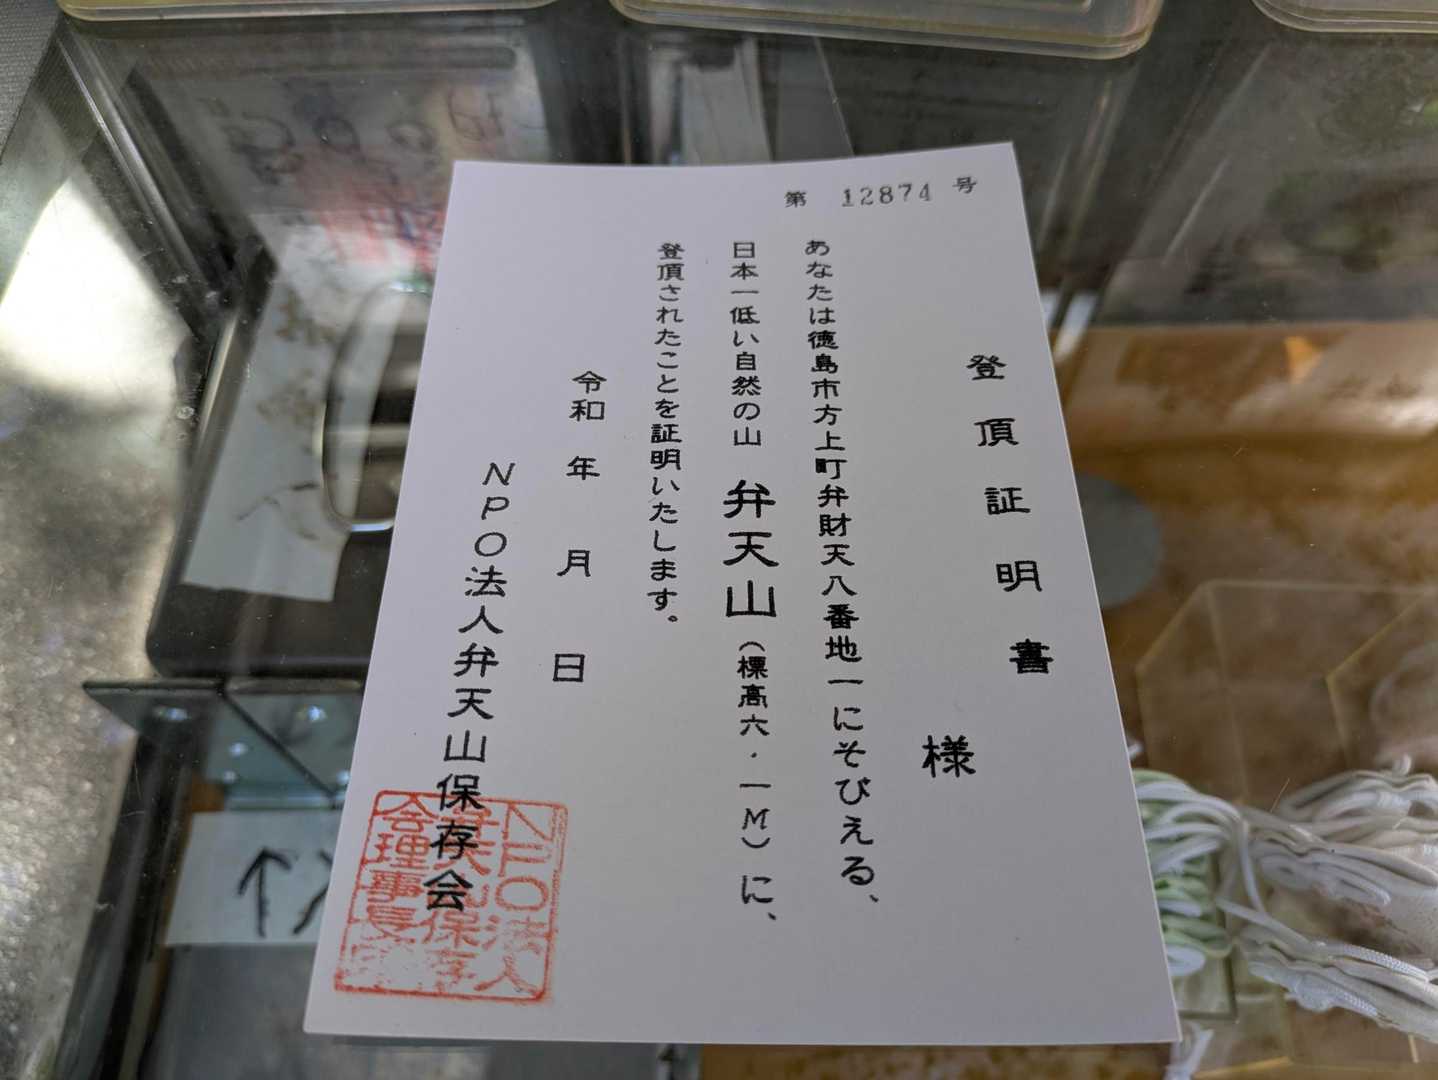 第 12874 号
登頂証明書
様
あなたは徳島市方上町弁財天八番地一にそびえる、
日本一低い自然の山 弁天山(標高六.一M)に、
登頂されたことを証明いたします。
令和 年 月 日
NPO法人弁天山保存会
NPO法人
弁天山保存
会理事長